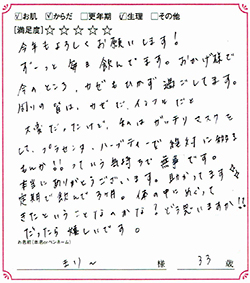 ☑お肌 ☑からだ □更年期 ☑生理 □その他
[満足度]☆☆☆☆☆
今年もよろしくお願いします!
ずーっと毎日飲んでます。おかげ様で
今のところ、カゼもひかず過ごしてます。
周りの皆は、カゼだ、インフルだと
大変だったけど、私はガッチリマスクを
して、プラセンタ、ハーブティーで絶対に
もんか!!っていう気持ちで無事です。
本当にありがとうございます。助かってます☆
定期で飲んで3ヶ月。体の中にめぐって
きたということなのかな?どう思いますか!?
だったら嬉しいです。
お名前[本名orペンネーム]
まりー 様 33 歳